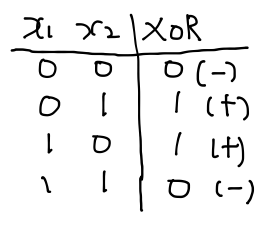 x₁ x₂ XOR
0 0 0 (-)
0 1 1 (+)
1 0 1 (+)
1 1 0 (-)